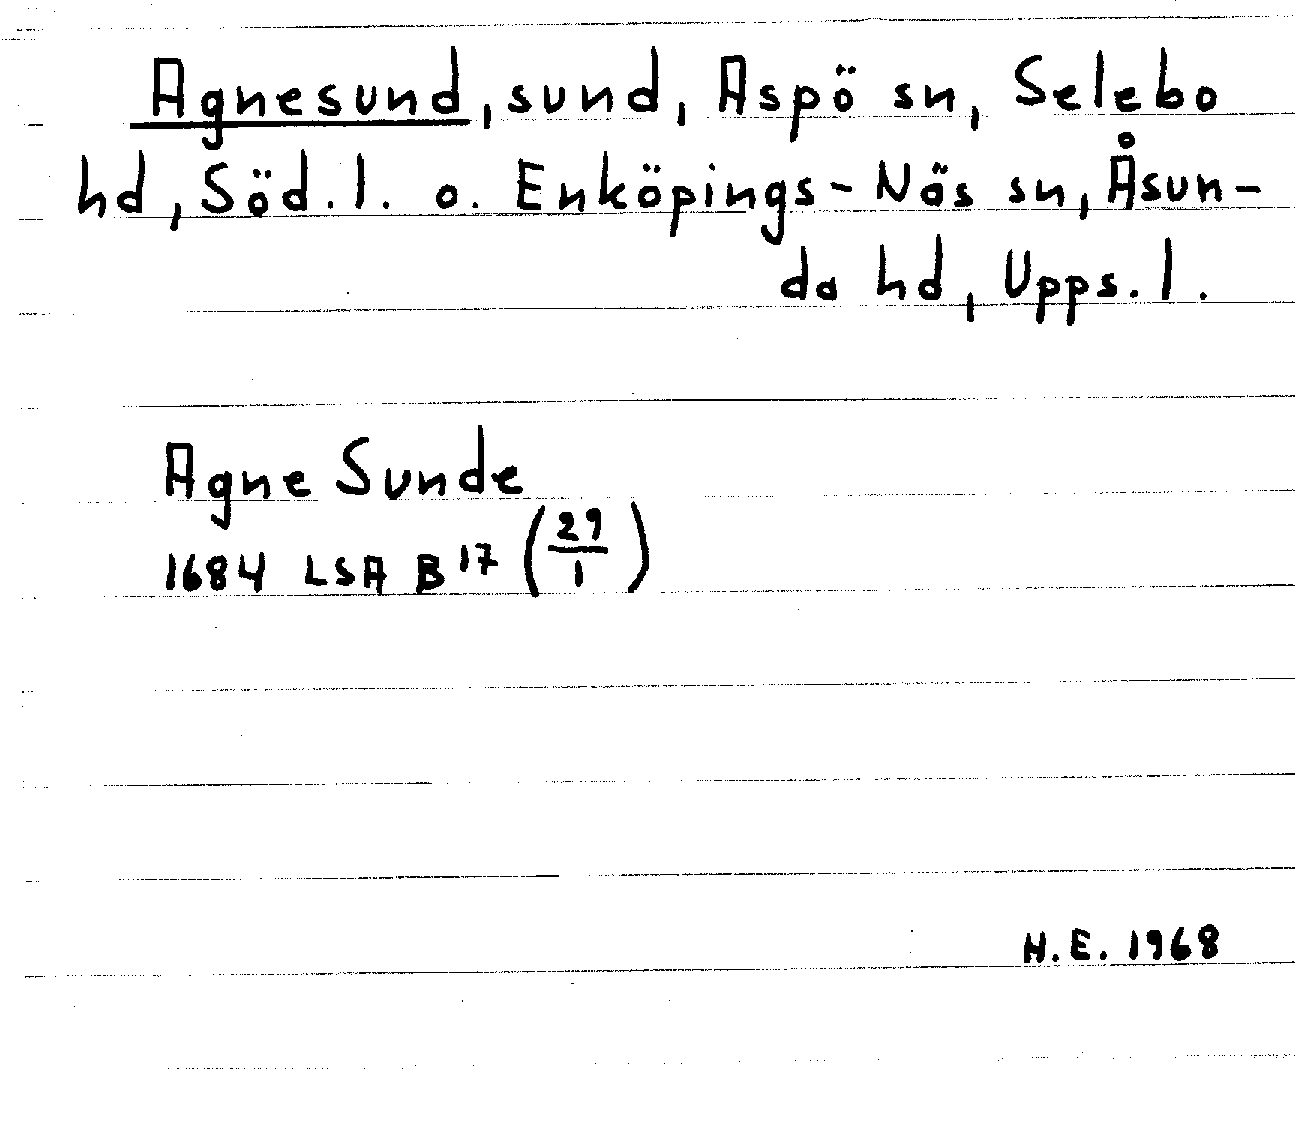 Agnesund, sund, Aspö sn, Selebo
hd, Söd. l. o. Enköpings-Näs sn, Åsun-
da hd, Upps. l.
Agne Sunde
1684 LSA B¹⁷ (29/1)
H.E. 1968